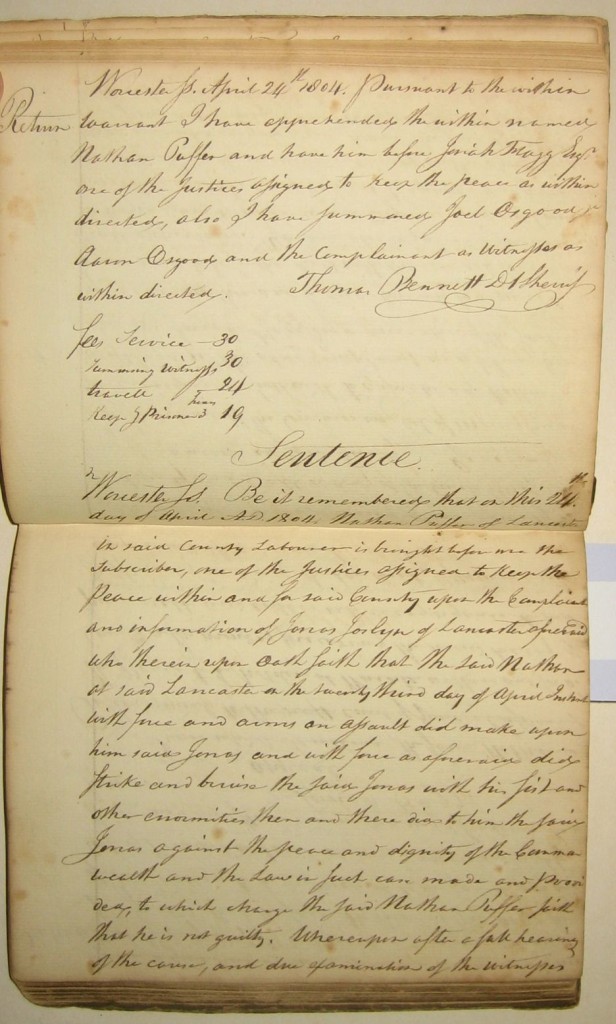 Worcester Ss. April 24th 1804. Pursuant to the within
Return warrant I have apprehended the within named
Nathan Puffer and have him before Josiah Flagg Esqr.
one of the Justices assigned to keep the peace as within
directed, also I have summoned Joel Osgood &
Aaron Osgood and the Complainant as Witnesses as
within directed. Thomas Bennett D Sheriff
fees Service - 30
Summing witnesses 30
travell 24
Keep g Prisoner 19
Sentence.
Worcester Ss. Be it remembered that on this 24th.
day of April AD 1804. Nathan Puffer of Lancaster
in said County Labourer is brought before me the
Subscriber, one of the Justices assigned to Keep the
Peace within and for said County upon the Complaint
and information of Jonas Joslyn of Lancaster aforesaid
who therein upon Oath saith that the said Nathan
at said Lancaster on the twenty third day of April Instant
with force and arms an assault did make upon
him said Jonas and with force as aforesaid did
Strike and bruise the said Jonas with his fist and
other enormities then and there did to him the said
Jonas against the peace and dignity of the Common
wealth and the Law in such case made and provi
ded, to which charge the said Nathan Puffer saith
that he is not guilty. Whereupon after a full hearing
of the cause, and due examination of the witnesses